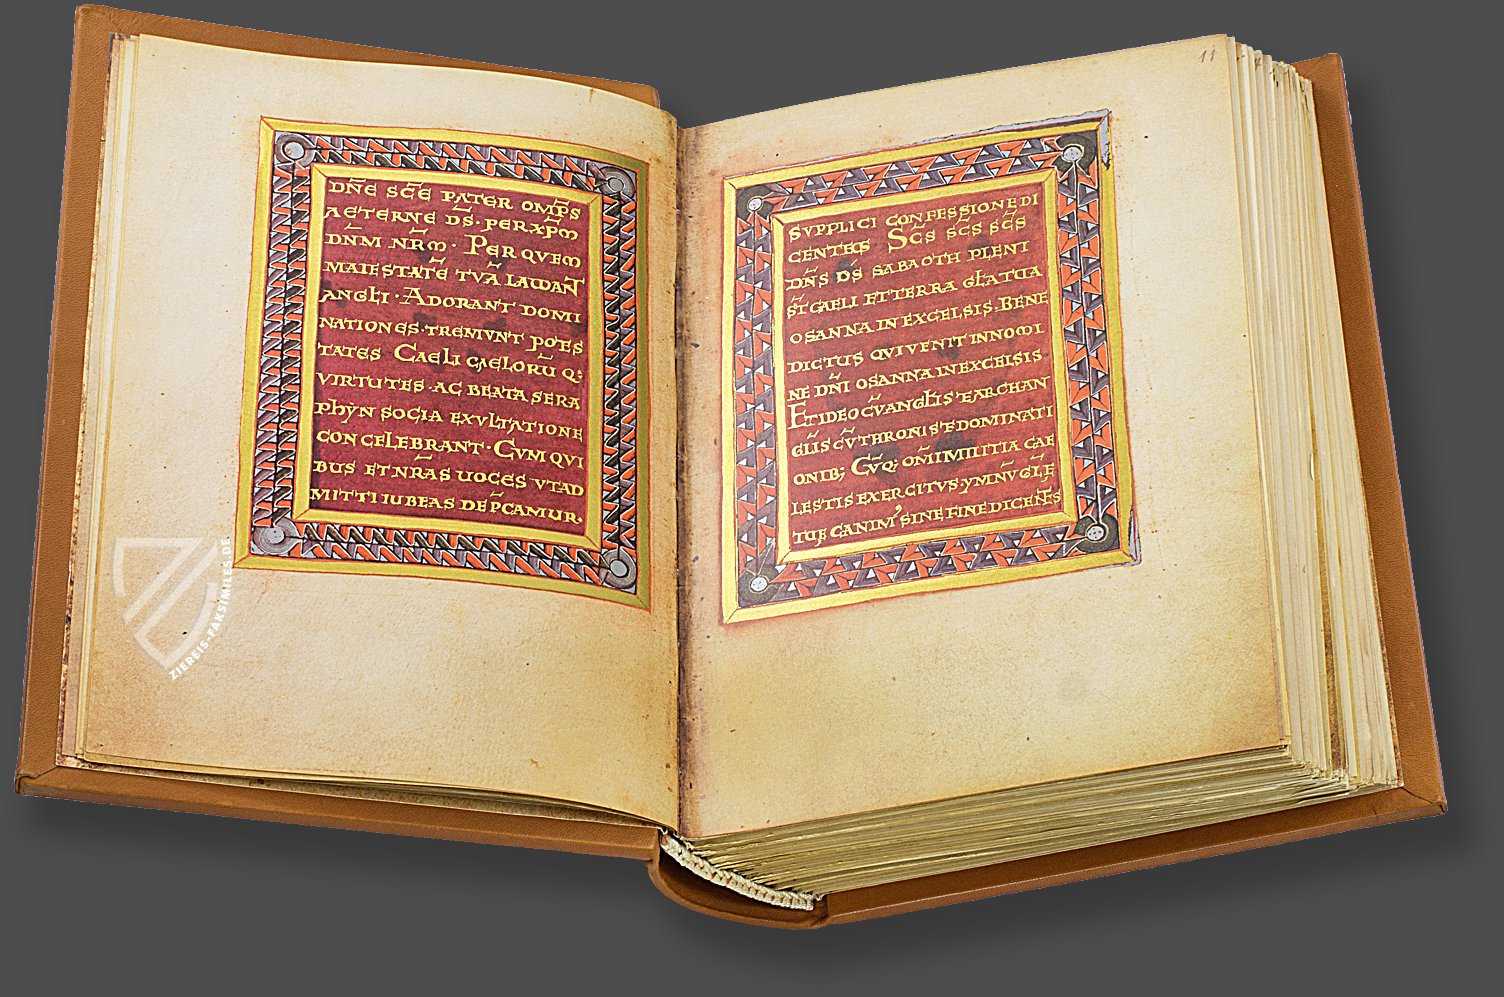 DNE SCE PATER OMPS
AETERNE DS · PER XPM
DNM NRM · PER QUEM
MAIESTATE TUA LAUDANT
ANGLI · ADORANT DOMI
NATIONES · TREMUNT POTES
TATES CAELI CAELORU Q;
VIRTUTES · AC BEATA SERA
PHYN SOCIA EXULTATIONE
CONCELEBRANT · CUM QUI
BUS ET NRAS UOCES UT AD
MITTI IUBEAS DEPCAMUR ·
11
SUPPLICI CONFESSIONE DI
CENTES SCS SCS SCS
DNS DS SABAOTH PLENI
ST CAELI ET TERRA GLA TUA
OSANNA IN EXCELSIS · BENE
DICTUS QUI VENIT IN NOMI
NE DNI OSANNA IN EXCELSIS
ET IDEO CU ANGLIS ET ARCHAN
GLIS CU THRONIS ET DOMINATI
ONIB; CUQ; OMI MILITIA CAE
LESTIS EXERCITUS YMNU GLE
TUE CANIM' SINE FINE DICENTES
ZIEREIS-FAKSIMILES.DE